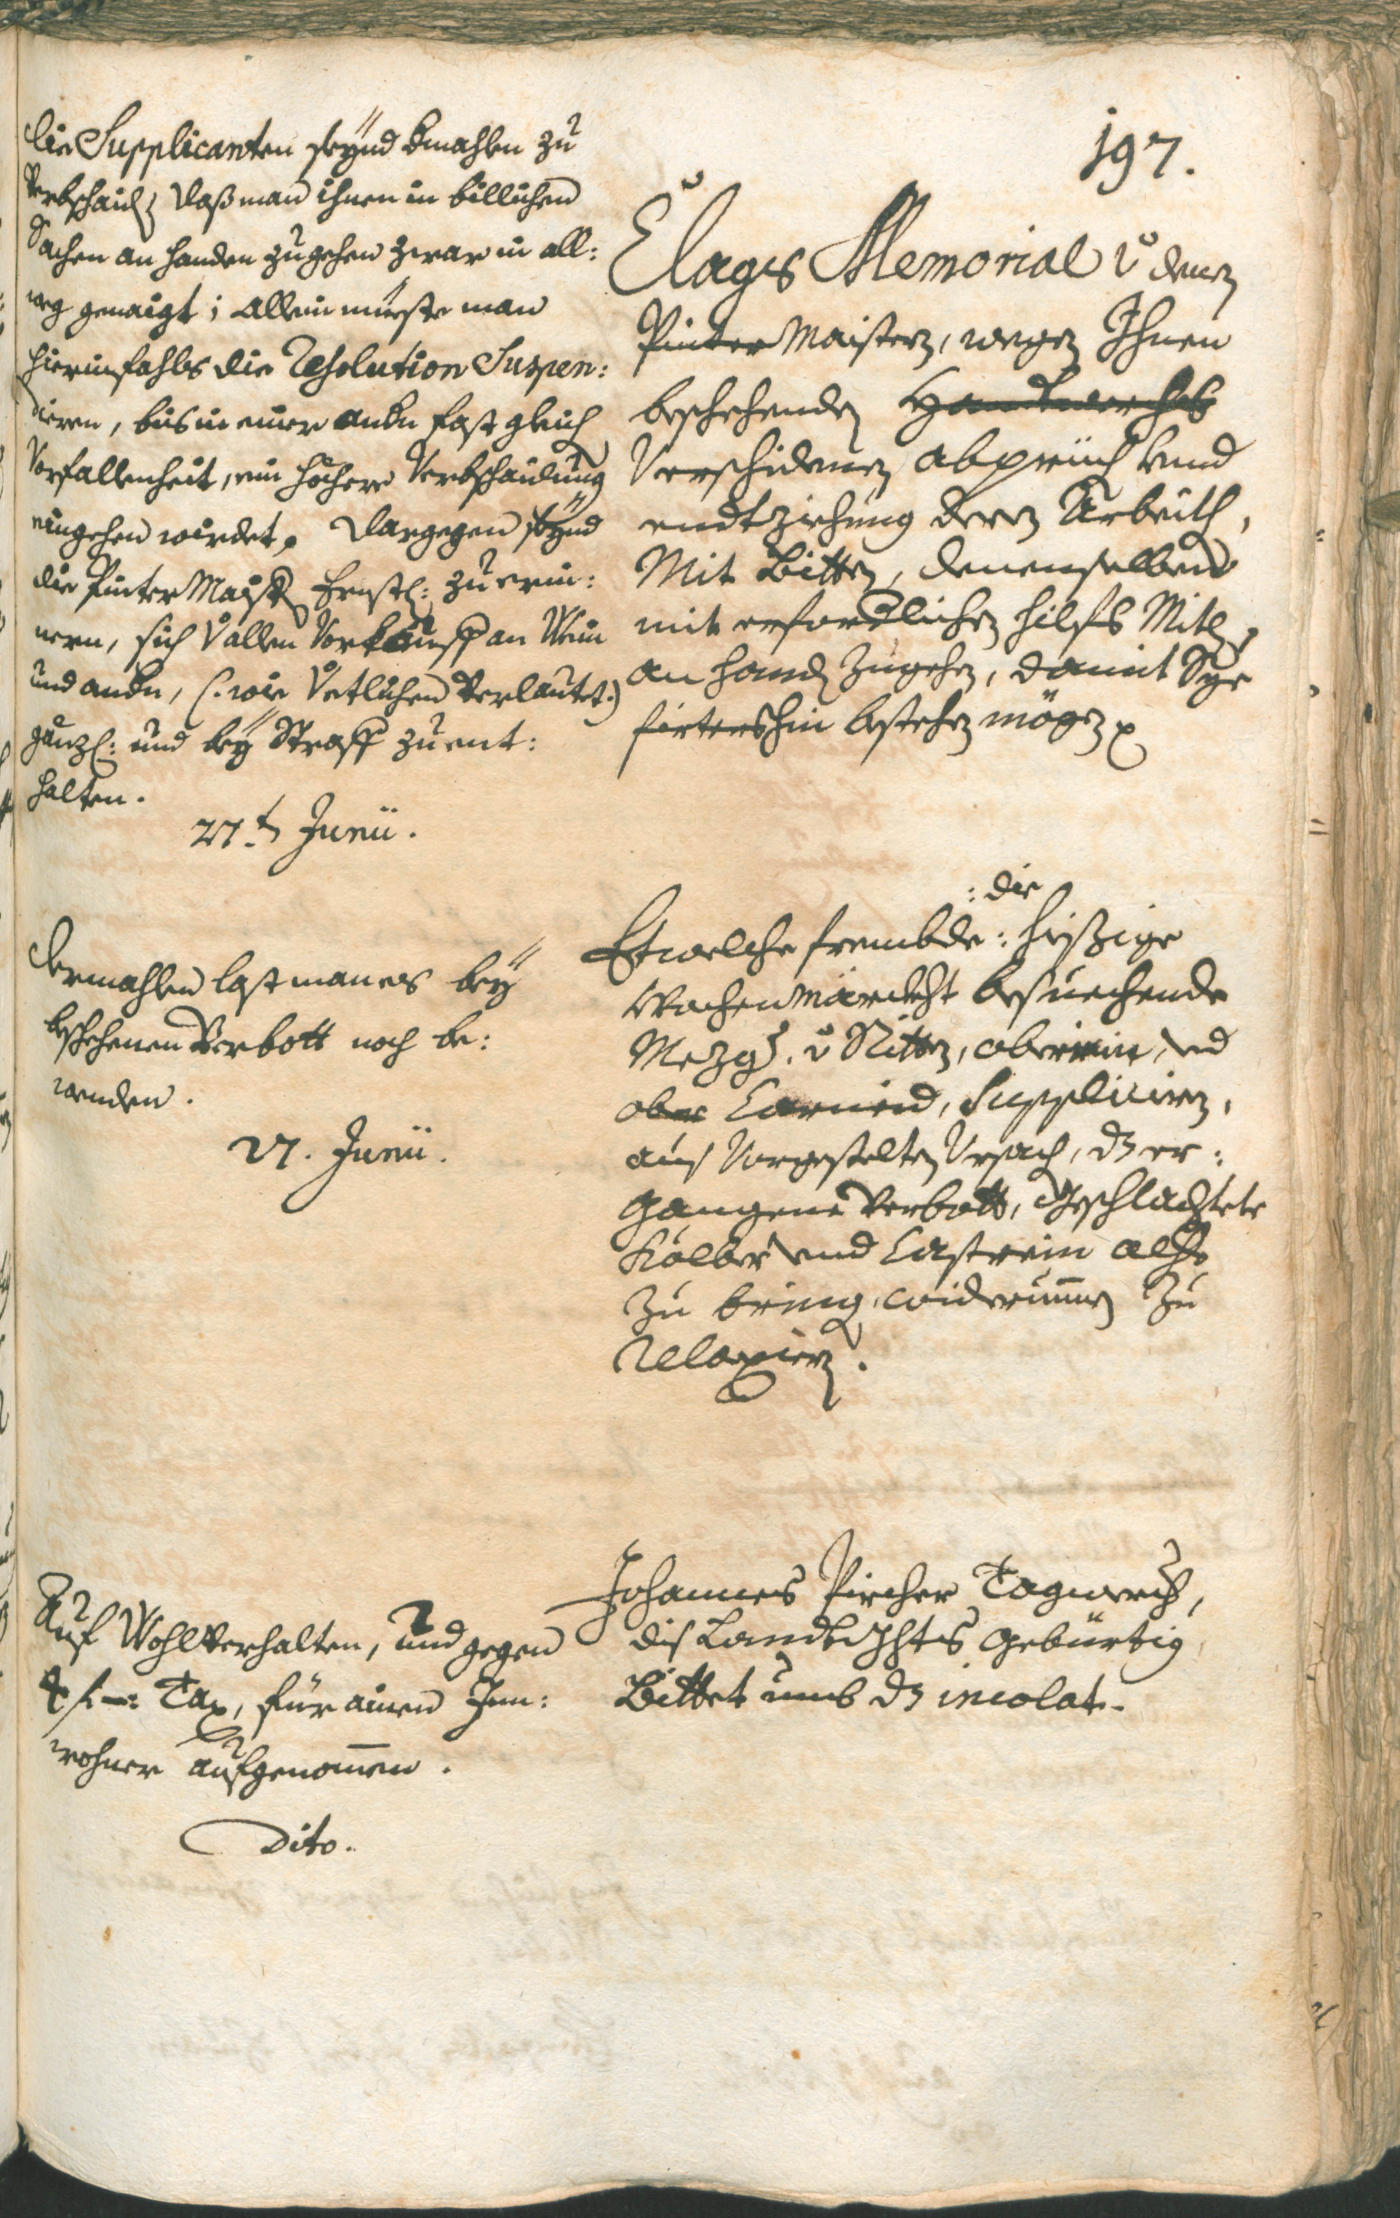 197.
die Supplicanten seÿnd dmahlen zu
verbschaid daß man ihnen in billichen
Sachen an handen zugehen zwar in all:
weg genaigt; allein mueste man
hierinfahls die Resolution Suspen:
dieren, bis in einer andn fast gleich
Vorfallenheit, ein höhere Verbschaidung
eingehen wirdet. Dargegen seÿnd
die Pinter Maistr Ernstl: zu erin:
nern, sich v allen Vorkauff an Wein
und andn, (: wie v etlichen verlautet:)
gänzl: und beÿ Straff zu ent:
halten.
27.t Junii.
Clags Memorial v denen
Pinter Maistern, wegen Ihnen
beschehenden Handwerchs
Verschidenen abpruch und
endtziehung deren Arbeith,
Mit Bitten, denenselben
mit erfordlichen hilfs Mitl
an hand zugehen, damit Sye
firtershin bestehen mögen
dermahlen last man es beÿ
beschehenen Verbott noch be:
wenden.
27. Junii.
: die
Etwelche frembde: hießige
Wochenmärckht besuechende
Mezgr. v Ritten, obereein, und
ober Carneid, Supplicieren,
aus Vorgestelten Ursach, dz er:
gangene Verbott, geschlachtete
Kölber und Castrein alhero
zu bringen, widerumen zu
Relaxieren.
Auf Wohlverhalten, und gegen
4 f.—: Tax, für ainen Inn:
wohner aufgenommen.
Dito.
Johannes Pircher Tagwerch,
dis Landtgrhts gebürtig
Bittet umb dz incolat.